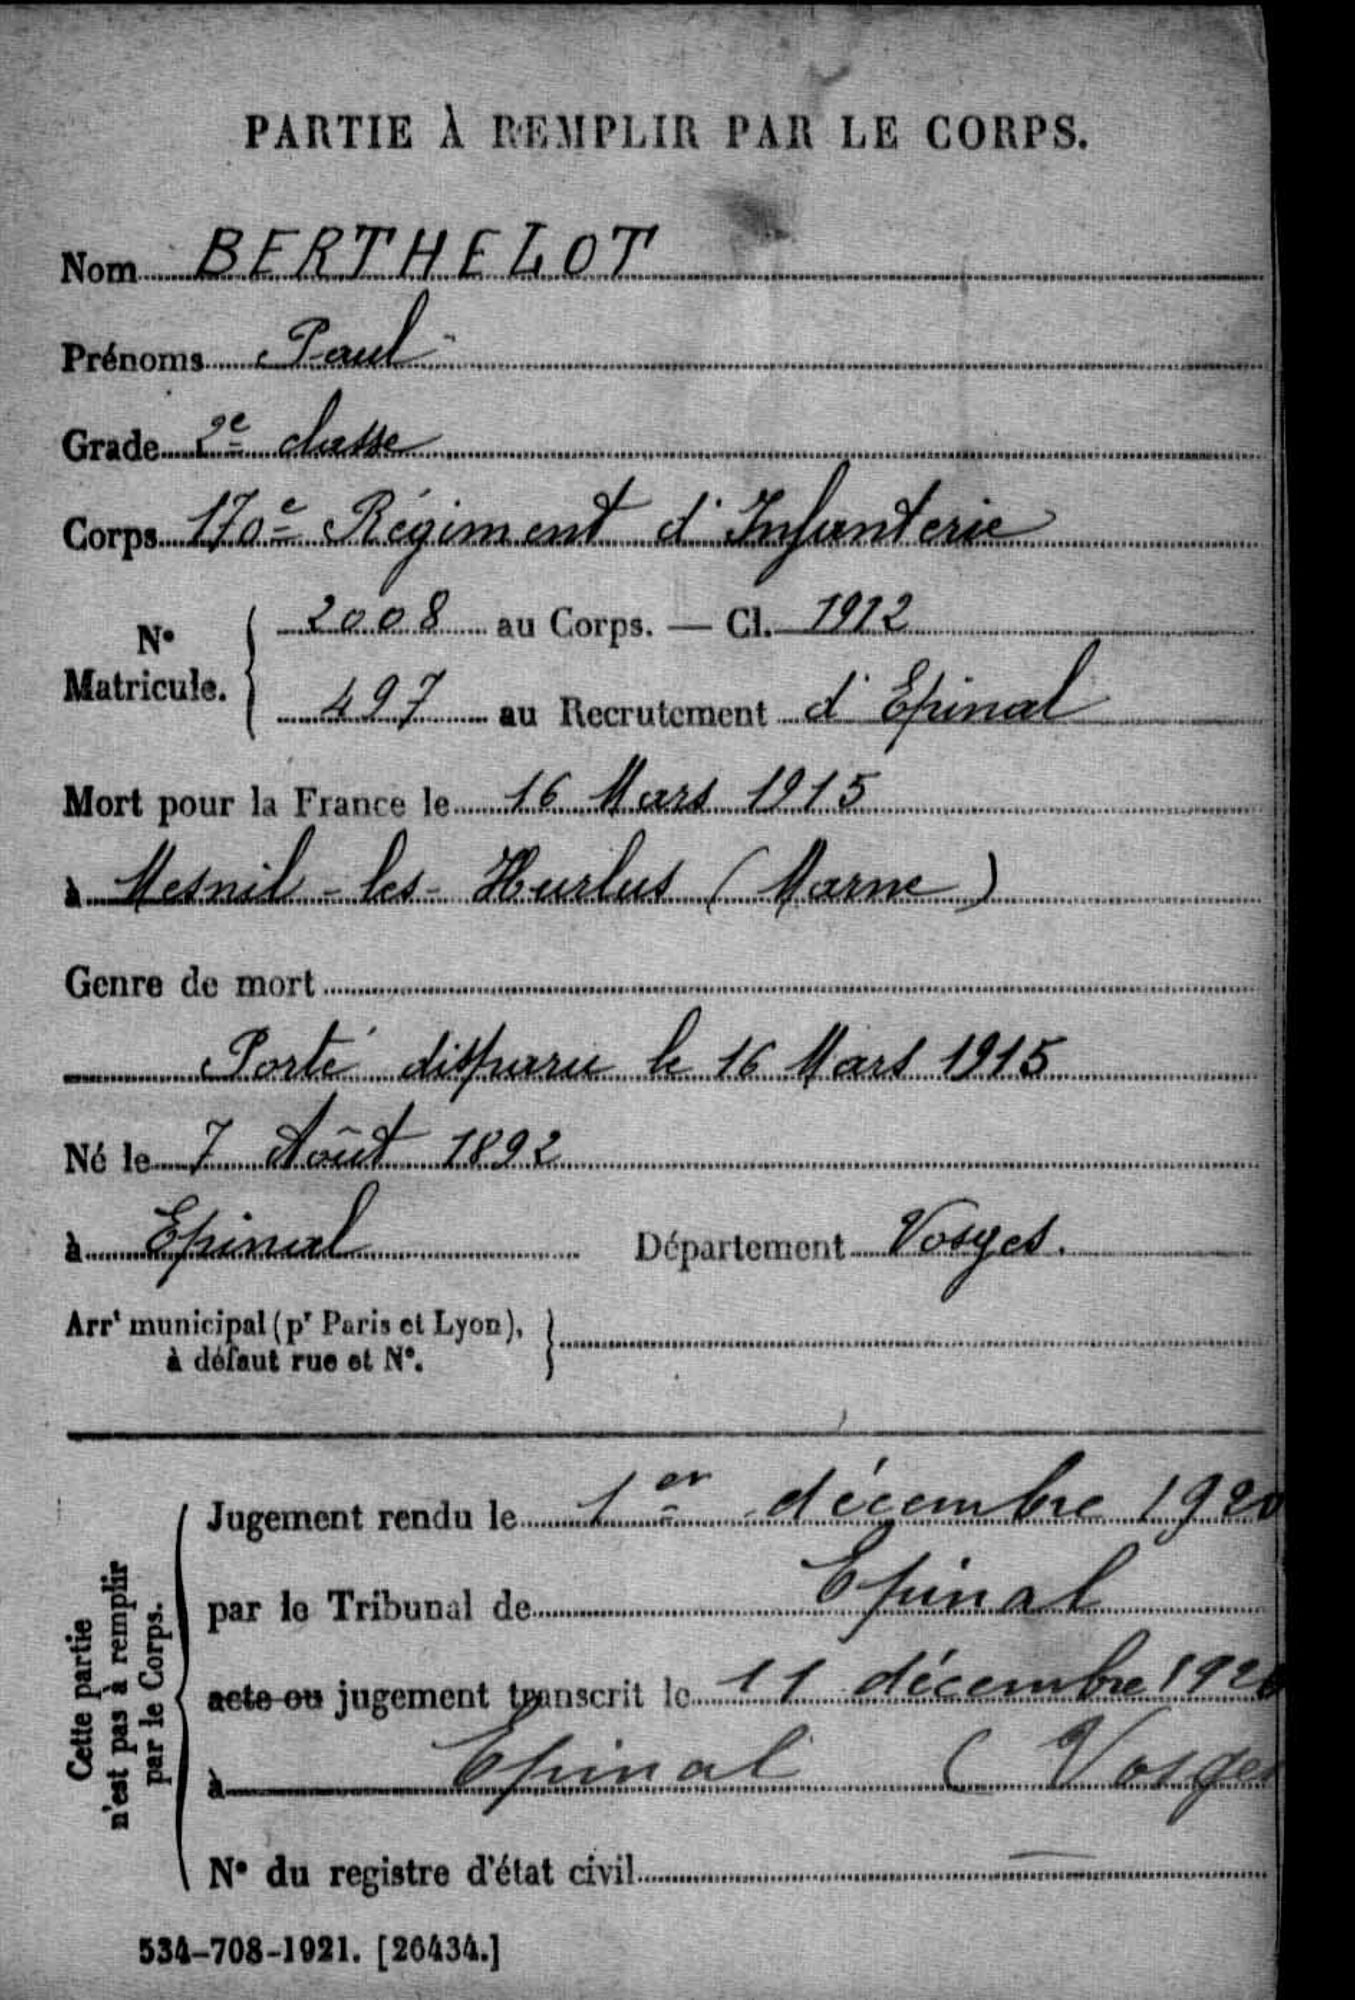 PARTIE À REMPLIR PAR LE CORPS.
Nom BERTHELOT
Prénoms Paul
Grade 2e classe
Corps 170e Régiment d'Infanterie
N° Matricule. { 2008 au Corps. — Cl. 1912
497 au Recrutement d'Epinal
Mort pour la France le 16 Mars 1915
à Mesnil-les-Hurlus (Marne)
Genre de mort
Porté disparu le 16 Mars 1915
Né le 7 Août 1892
à Epinal Département Vosges.
Arrt municipal (pr Paris et Lyon), }
à défaut rue et N°.
Cette partie
n'est pas à remplir
par le Corps.
Jugement rendu le 1er décembre 1920
par le Tribunal de Epinal
acte ou jugement transcrit le 11 décembre 1920
à Epinal (Vosges
N° du registre d'état civil —
534-708-1921. [26434.]